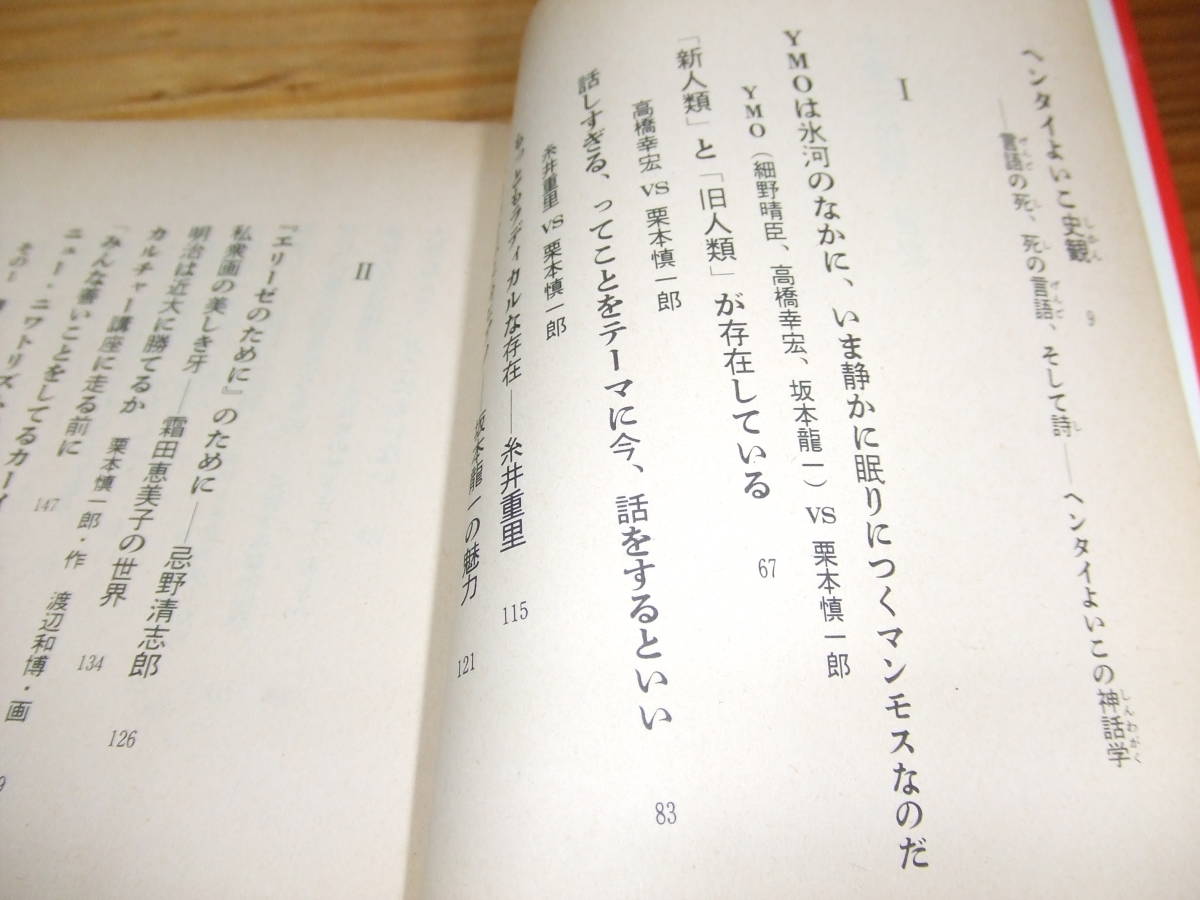 ヘンタイよいこ史観 9
しかん
――言語の死、死の言語、そして詩――ヘンタイよいこの神話学
げんご し げんご し しんわがく
I
YMOは氷河のなかに、いま静かに眠りにつくマンモスなのだ
YMO(細野晴臣、高橋幸宏、坂本龍一)VS 栗本慎一郎
「新人類」と「旧人類」が存在している 67
高橋幸宏 VS 栗本慎一郎
話しすぎる、ってことをテーマに今、話をするといい 83
糸井重里 VS 栗本慎一郎
もっともラディカルな存在――糸井重里 115
坂本龍一の魅力 121
II
『エリーゼのために』のために――忌野清志郎 126
私衆画の美しき牙――霜田恵美子の世界 134
明治は近大に勝てるか 栗本慎一郎・作 渡辺和博・画
カルチャー講座に走る前に 147
「みんな善いことをしてるカーイ
ニュー・ニワトリズム
その1